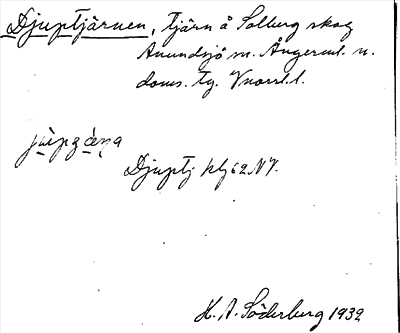 Djuptjärnen, tjärn å Solberg skog
Anundsjö sn. Ångerml. n.
doms. tg. Vnorrl. l.
Djuptj. blj 62 NV.
H. A. Söderberg 1932